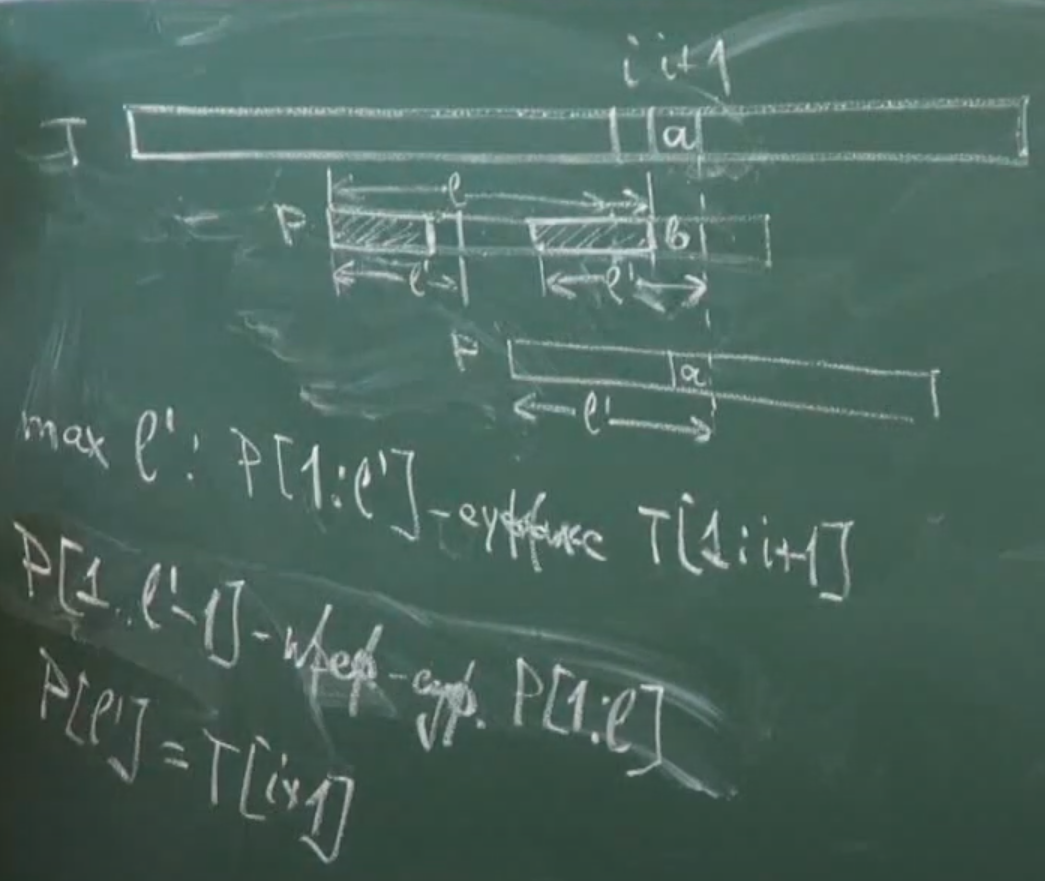 i i+1
T a
l
P b
l' l'
P a
l'
max l': P[1:l'] - суффикс T[1:i+1]
P[1..l'-1] - преф-суф. P[1:l]
P[l'] = T[i+1]